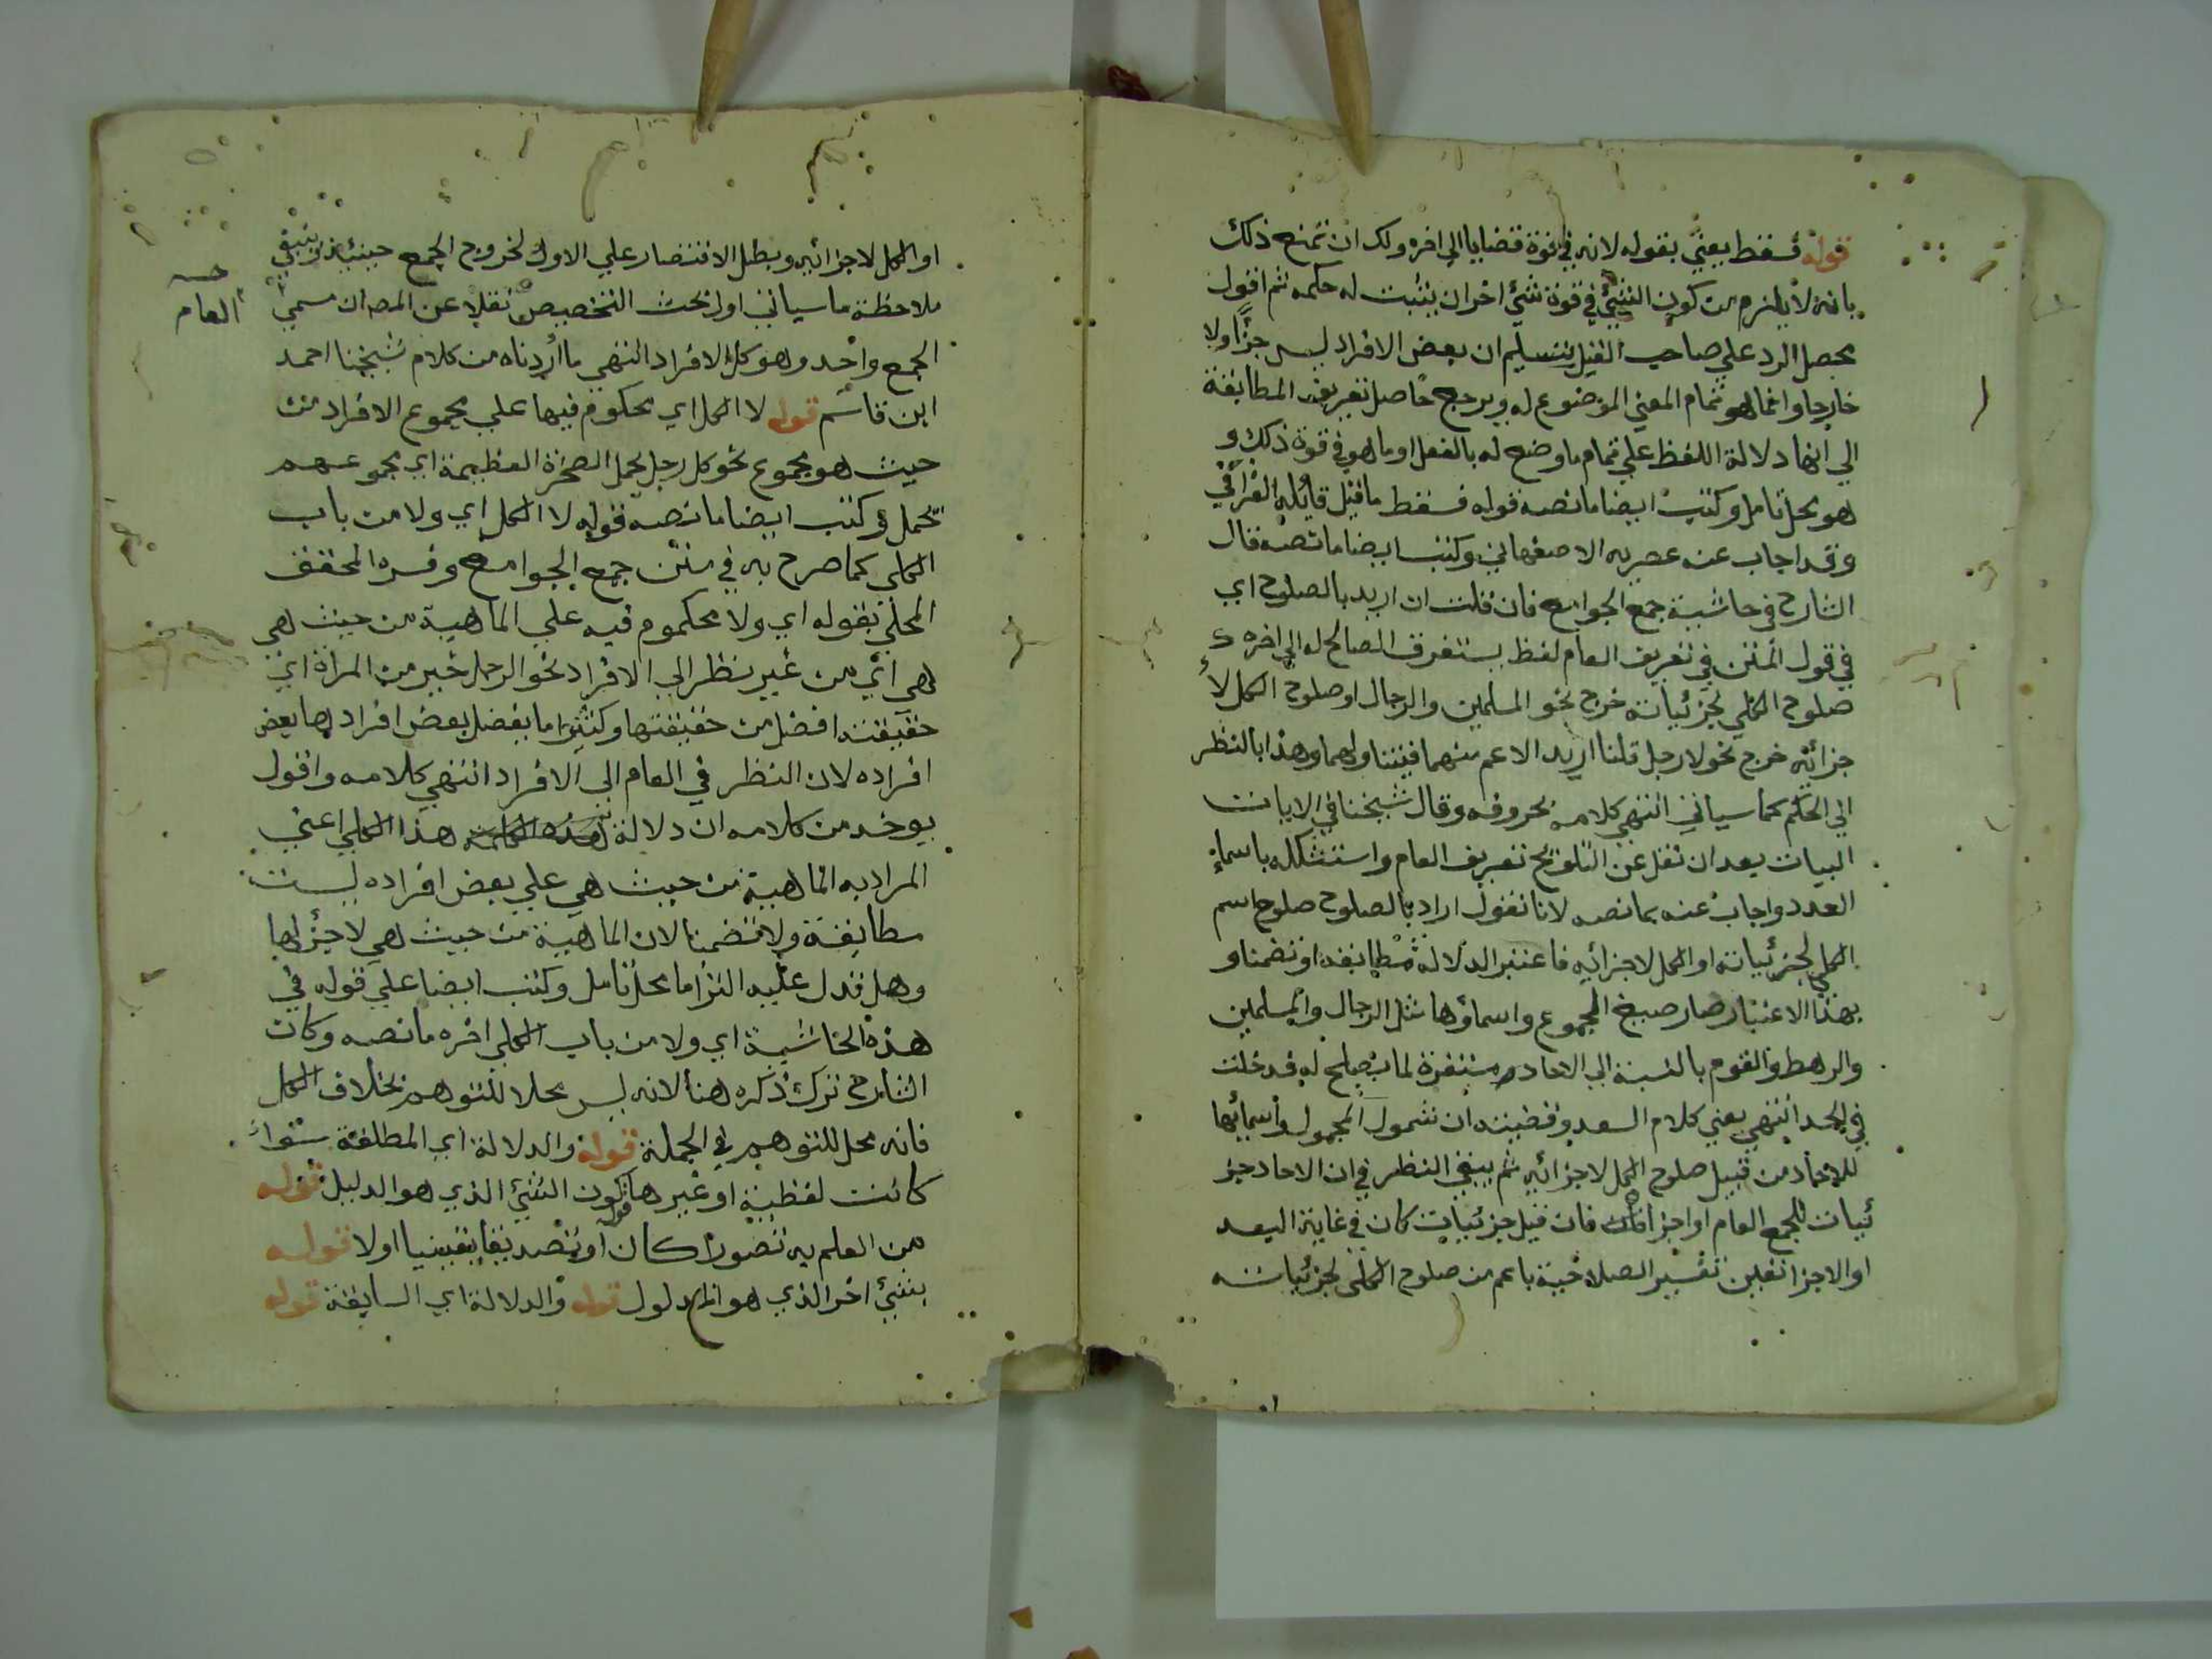 قوله فسقط يعني بقوله لانه في قوة قضايا الي اخره ولك ان تمنع ذلك
بانه لا يلزم من كون الشيء في قوة شيء اخر ان يثبت له حكمه ثم اقول
محصل الرد علي صاحب القيل تسليم ان بعض الافراد ليس جزأ ولا
خارجا وانما هو تمام المعني الموضوع له ويرجع حاصل تعريف المطابقة
الي انها دلالة اللفظ علي تمام ما وضع له بالفعل او ما هو في قوة ذلك و
هو محل تامل وكتب ايضا ما نصه قوله فسقط ما قيل قائله القرافي
وقد اجاب عنه عصريه الاصفهاني وكتب ايضا ما نصه قال
الشارح في حاشية جمع الجوامع فان قلت ان اريد بالصلوح اي
في قول المتن في تعريف العام لفظ يستغرق الصالح له الي اخره
صلوح الكلي لجزئياته خرج نحو المسلمين والرجال او صلوح الكل لا
جزائه خرج نحو لا رجل قلنا اريد الاعم منهما فيتناولهما وهذا بالنظر
الي الحكم كما سياتي انتهي كلامه بحروفه وقال شيخنا في الايات
البينات بعد ان نقل عن التلويح تعريف العام واستشكله باسماء
العدد واجاب عنه بما نصه لانا نقول اراد بالصلوح صلوح اسم
الكلي لجزئياته او الكل لاجزائه فاعتبر الدلالة مطابقة او تضمنا و
بهذا الاعتبار صار صيغ الجموع واسماؤها مثل الرجال والمسلمين
والرهط والقوم بالنسبة الي الاحاد مستغرقة لما يصلح له فدخلت
في الحد انتهي يعني كلام السعد وقضيته ان شمول الجموع واسمائها
للاحاد من قبيل صلوح الكل لاجزائه ثم ينبغي النظر في ان الاحاد جز
ئيات للجمع العام او اجزاؤه فان قيل جزئيات كان في غاية البعد
او الاجزا تعين تفسير الصلاحية باعم من صلوح الكلي لجزئياته
او الكل لاجزائه وبطل الاقتصار علي الاول لخروج الجمع حينئذ وينبغي
ملاحظة ما سياتي اول بحث التخصيص نقلا عن المص ان مسمي
العام
الجمع واحد وهو كل الافراد انتهي ما اردناه من كلام شيخنا احمد
ابن قاسم قوله لا الكل اي محكوم فيها علي مجموع الافراد من
حيث هو مجموع نحو كل رجل يحمل الصخرة العظيمة اي مجموعهم
يحمل وكتب ايضا ما نصه قوله لا الكل اي ولا من باب
الكلي كما صرح به في متن جمع الجوامع وفسره المحقق
المحلي بقوله اي ولا محكوم فيه علي الماهية من حيث هي
هي اي من غير نظر الي الافراد نحو الرجل خير من المراة اي
حقيقته افضل من حقيقتها وكثيرا ما يفضل بعض افرادها بعض
افراده لان النظر في العام الي الافراد انتهي كلامه واقول
يوخذ من كلامه ان دلالة هذا الكلي اعني
المراد به الماهية من حيث هي علي بعض افراده ليست
مطابقة ولا تضمنا لان الماهية من حيث هي لا جزء لها
وهل تدل عليه التزاما محل تامل وكتب ايضا علي قوله في
هذه الحاشية اي ولا من باب الكلي اخره ما نصه وكان
الشارح ترك ذكره هنا لانه ليس محلا للتوهم بخلاف الكل
فانه محل للتوهم في الجملة قوله والدلالة اي المطلقة سواء
كانت لفظية او غيرها قوله كون الشيء الذي هو الدليل قوله
من العلم به تصورا كان او تصديقا يقينيا اولا قوله
بشيء اخر الذي هو المدلول قوله والدلالة اي السابقة قوله